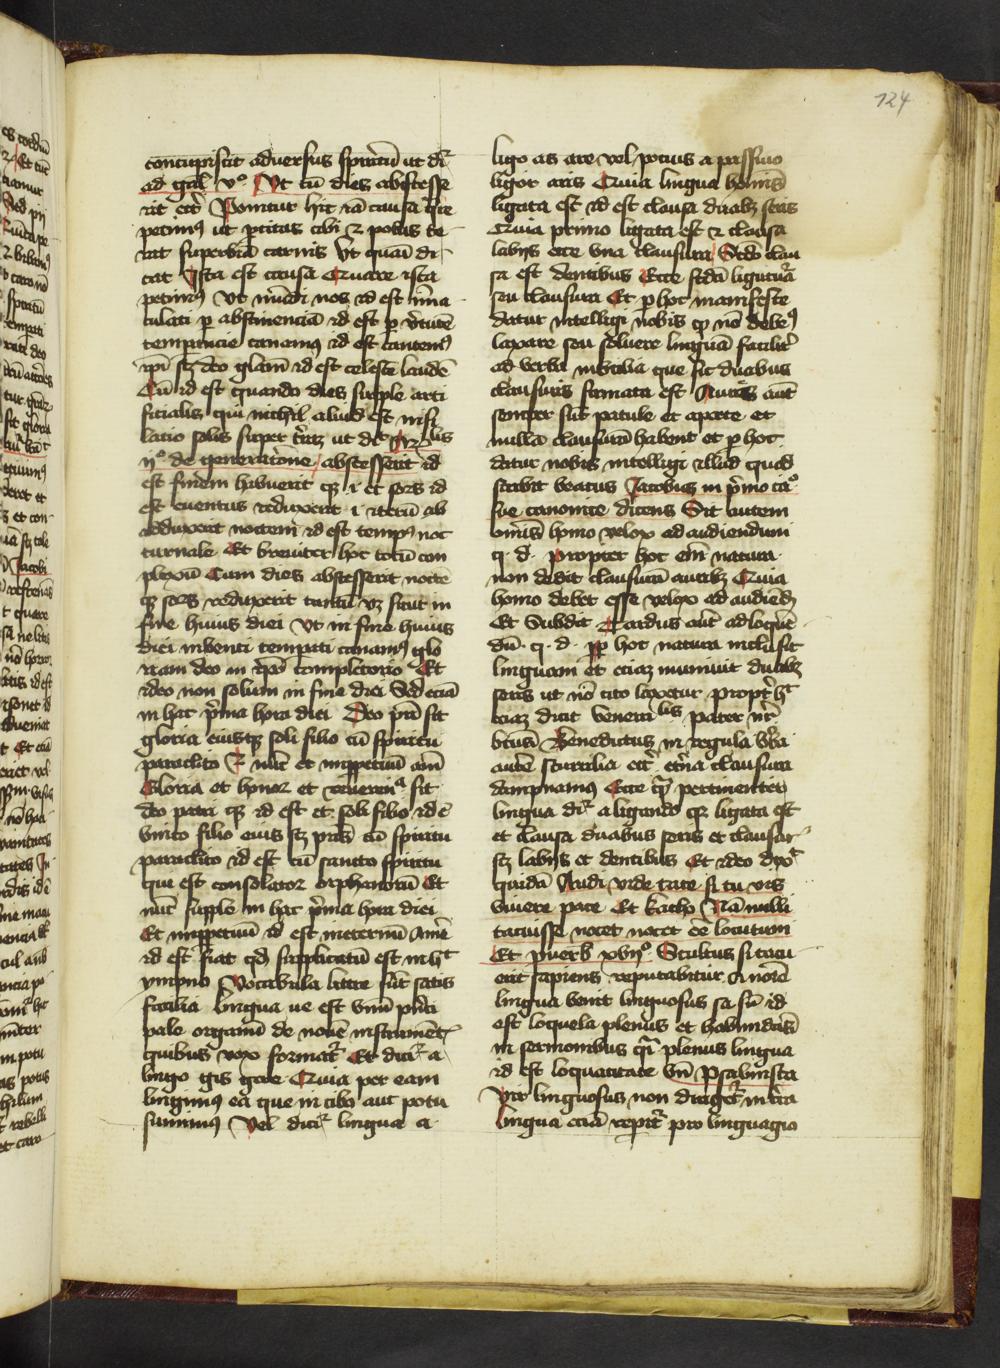 124
concupiscit adversus spiritū ut dr̄
ad gal̄ vº Ut cū dies abscesse
rit etc̄ Ponitur hic r̄a causa q̄re
petimꝰ ut pcitas cibi ⁊ potus te
rat superbiā carnis Ut quasi di
cat Ista est causa Quare ista
petimꝰ Ut mūdi nos id est īma
culati p abstinenciā id est p v̄tutē
temperancie canamꝰ id est cantemꝰ
ip̄i sꝫ deo glāiā id est celestē laudē
Cū id est quando dies supple arti
ficialis qui nichil aliud est nisi
latio solis super t̄rā ut dr̄
iiº de generatione abscesserit id
est finem habuerit qꝫ i et sors id
est eventus reduxerit i iterū ad
adduxerit noctem id est tempꝰ noc
turnale Et breviter hoc totū con
plexū Cum dies abscesserit nocte
qꝫ sors reduxerit tantū vꝫ sicut in
fine huius diei Ut in fine huius
diei inventi temperati canamꝰ glo
riam deo in completorio Et
ideo non solum in fine diei Sed eciā
in hac p̄ma hora diei Deo p̄ri sit
gloria eiusqꝫ soli filio cū spiritu
paraclito Et nūc et inppetuū am̄
Gloria et honor et reverenᵃ sit
deo patri qꝫ id est et soli filio id ē
unico filio eius sꝫ pris cū spiritu
paraclito id est cū sancto spiritu
qui est consolator orphanorū Et
nūc supple in hac p̄ma hora diei
Et inppetuū id est ineternū Amē
id est fiat qd̄ supplicatū est in hᵗ
ympno Vocabula littere sūt satis
facilia lingua ue est unū p̄nci
pale organū de novē instrumētꝭ
quibus vox formatr̄ Et dicir̄ a
lingo gis gere Quia per eam
lingimꝰ ea que in cibo aut potu
sumimꝰ Vel dicir̄ lingua a
ligo as are vel potius a passivo
ligor aris Quia lingua hominis
ligata est id est clausa duabꝫ seris
Quia primo ligata est ⁊ clausa
labijs ecce una clausura Scdo clau
sa est dentibus Ecce scdā ligaturā
seu clausura Et p hoc manifeste
datur intelligi nobis qꝫ nō debeꝰ
laxare seu solvere linguā facilit̄
ad verba inutilia que sic duabus
clausuris firmata est Auris aūt
semper sūt patule et aperte et
nullā clausurā habent et p hoc
datur nobis intelligi illud quod
scribit beatus Jacobus in p̄mo caº
sue canonice dicens Sit autem
om̄is homo velox ad audiendum
q. d. propter hoc em̄ natura
non dedit clausurā auribꝫ Quia
homo debet esse velox ad audiēdꝫ
Et Subdit Tardus aūt ad loquē
dū. q. d. ppt hoc natura inclusit
linguam et eciaꝫ munivit duabꝫ
seris ut nō cito laxetur propt̄ hᵗ
eciaꝫ dicit venerabilis pater nr̄
btūs Benedictus in regula v̄ba
autē scurrilia etc̄ et̄na clausura
dampnamꝰ Ecce qꝫ pertinenter
lingua dr̄ a ligando qꝛ ligata est
et clausa duabus seris et clausurꝭ
sꝫ labijs et dentibus Et ideo dixᵗ
quidā Audi vide tace si tu vis
vivere pace Et Katho Nā nulli
tacuisse nocet nocet ēē locutum
Et puerb xvijº Stultus si tacu
erit sapiens reputabitur A noīe
lingua venit linguosus sa sū id
est loquela plenus et habundās
in sermonibus q̄i plenus lingua
id est loquacitate Vn̄ Psalmista
Vir linguosus non dirigetr̄ in t̄ra
lingua eciā repit̄ pro linguagio